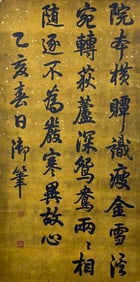 院本暉識瘦金雪涇
宛轉荻蘆深鴛鴦兩〻相
隨逐不為嚴寒異故心
乙亥春日御筆